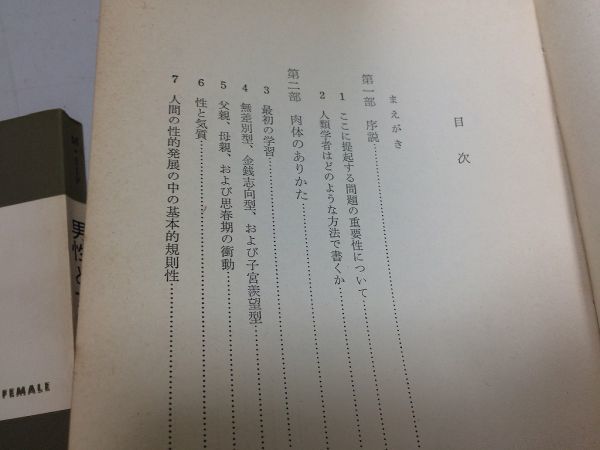 目次
まえがき
第一部 序説
1 ここに提起する問題の重要性について
2 人類学者はどのような方法で書くか
第二部 肉体のありかた
3 最初の学習
4 無差別型、金銭志向型、および子宮羨望型
5 父親、母親、および思春期の衝動
6 性と気質
7 人間の性的発展の中の基本的規則性
男性と
FEMALE